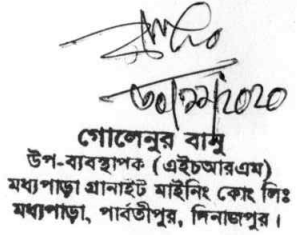 ৩০/১১/২০২০
গোলেনুর বানু
উপ-ব্যবস্থাপক (এইচআরএম)
মধ্যপাড়া গ্রানাইট মাইনিং কোং লিঃ
মধ্যপাড়া, পার্বতীপুর, দিনাজপুর।